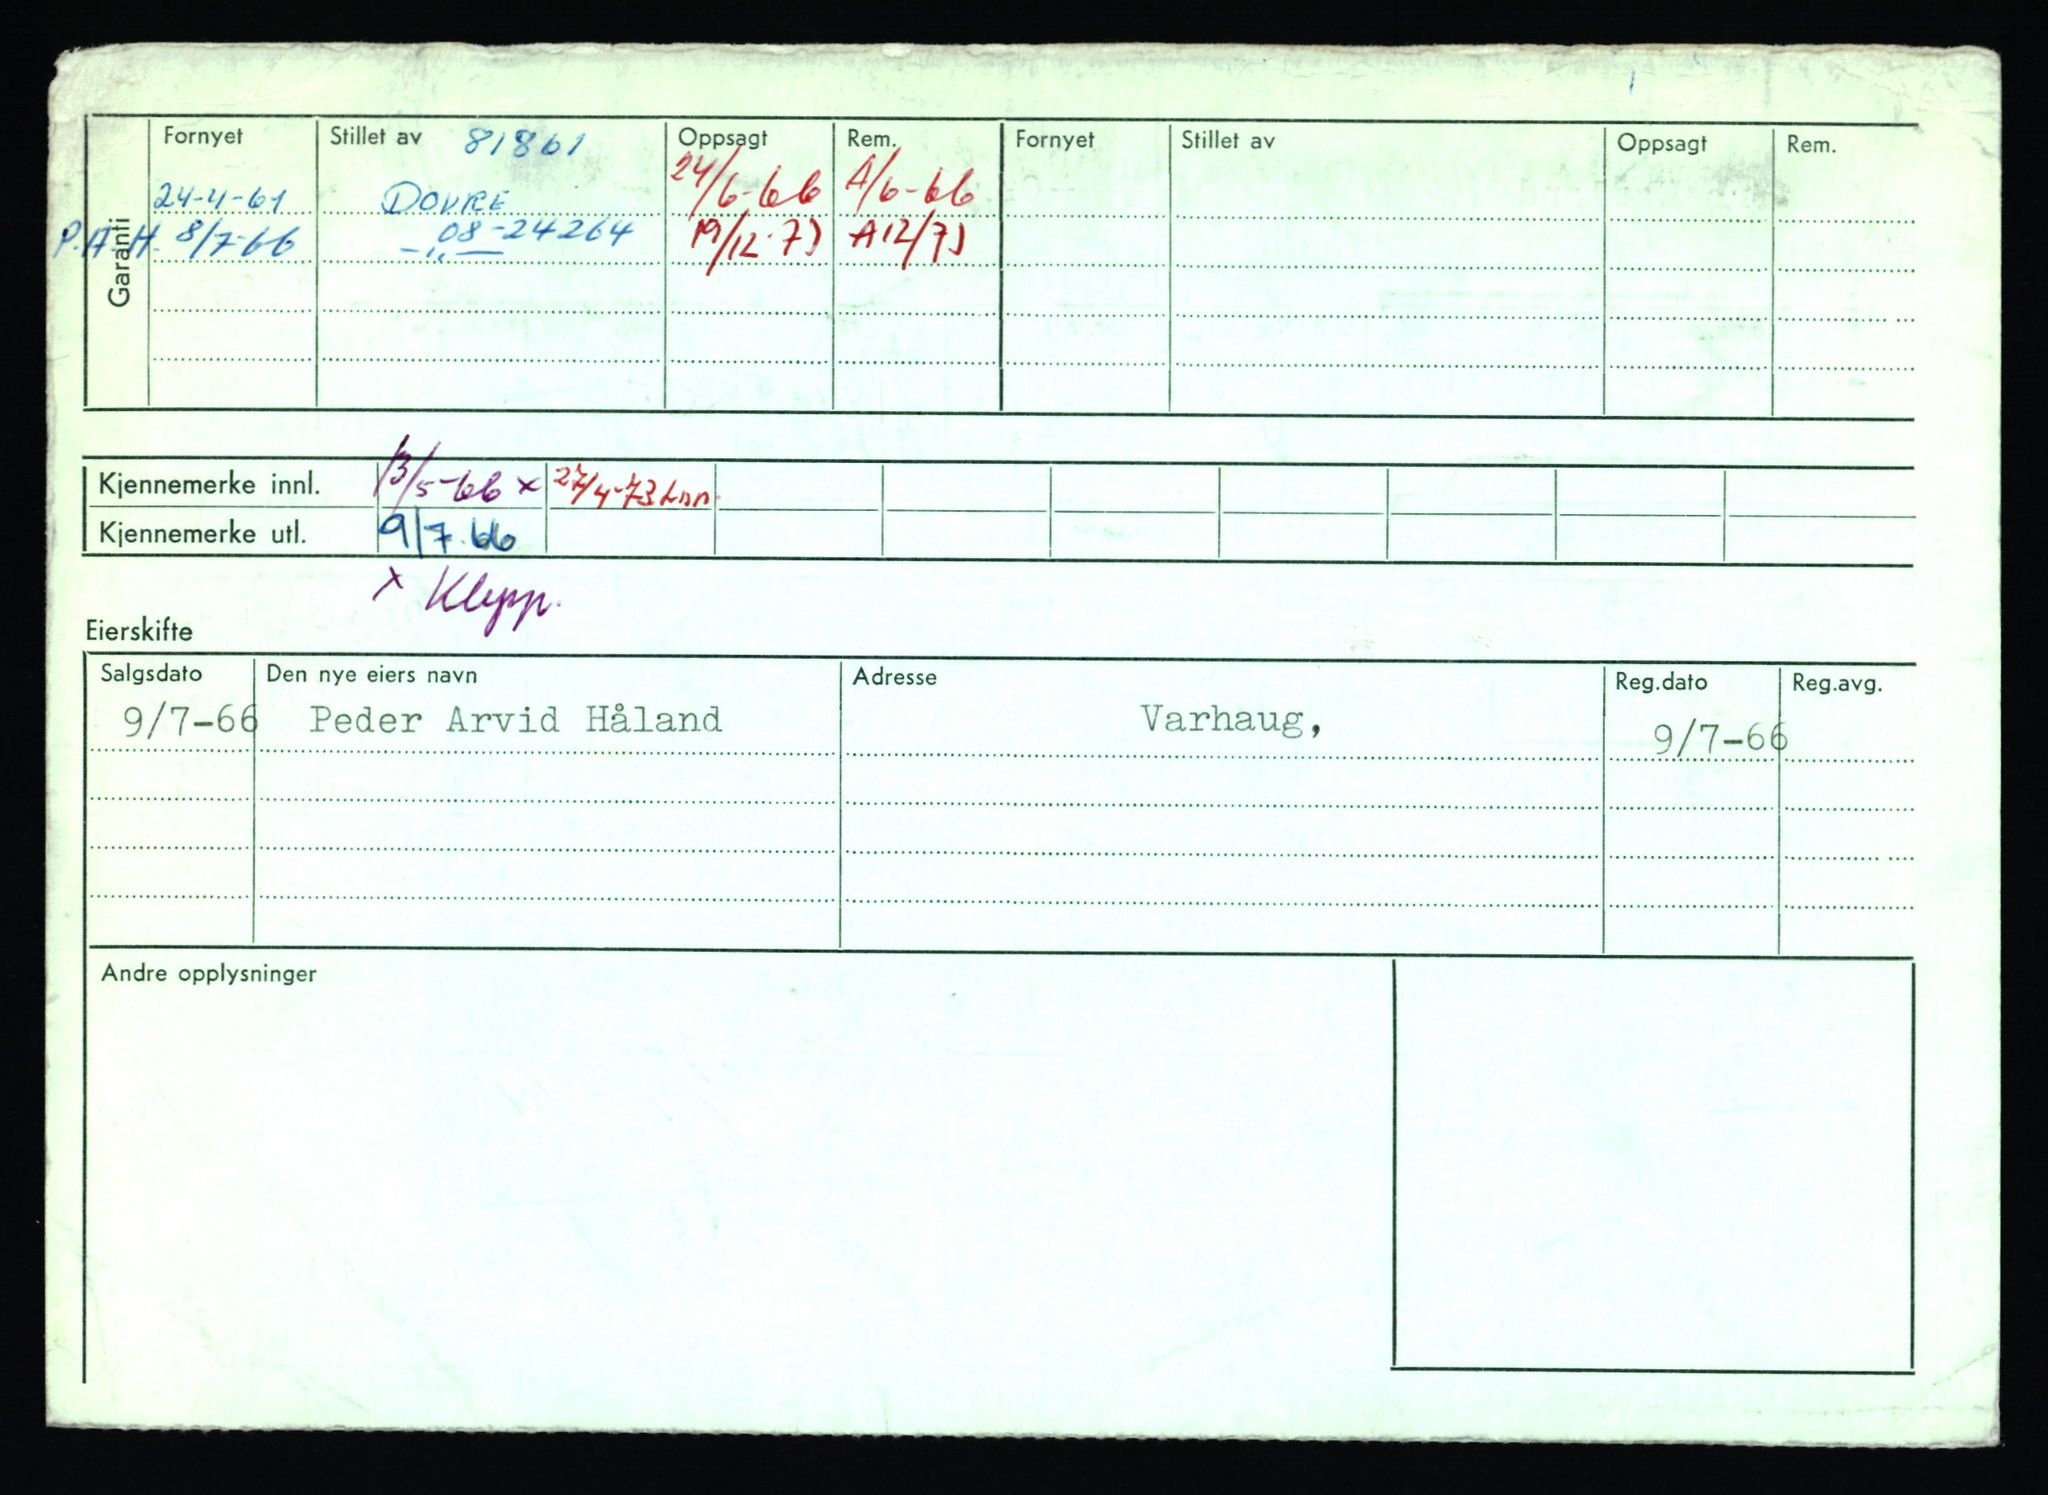 Fornyet Stillet av 81861 Oppsagt Rem. Fornyet Stillet av Oppsagt Rem.
Garanti
24-4-61 DOVRE 24/6-66 A/6-66
P.A.H. 8/7-66 -"- 08-24264 19/12-73 A12/73
Kjennemerke innl. 13/5-66 x 27/4-73
Kjennemerke utl. 9/7.66
x Klepp.
Eierskifte
Salgsdato Den nye eiers navn Adresse Reg.dato Reg.avg.
9/7-66 Peder Arvid Håland Varhaug, 9/7-66
Andre opplysninger